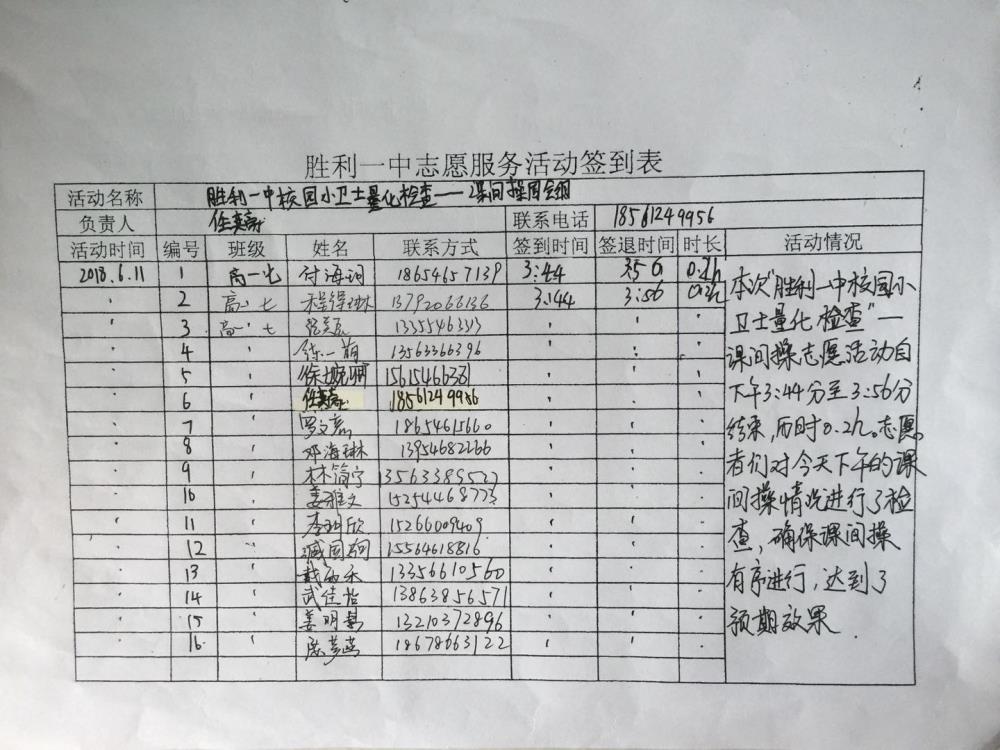 胜利一中志愿服务活动签到表
活动名称 胜利一中校园小卫士量化检查——课间操
负责人 联系电话 18561249956
活动时间 编号 班级 姓名 联系方式 签到时间 签退时间 时长 活动情况
2018.6.11 1 高一七 付海词 18654657139 3:44 3:56 0.2h
〃 2 高一七 程绎琳 13792066136 3:44 3:56 0.2h
〃 3 高一七 〃 〃 〃
〃 4 〃 陈一萌 13563366396 〃 〃 〃
〃 5 〃 〃 〃 〃
〃 6 〃 18561249956 〃 〃 〃
〃 7 〃 罗文嘉 18654615660 〃 〃 〃
〃 8 〃 邓海琳 13954682266 〃 〃 〃
〃 9 〃 林简宁 〃 〃 〃
〃 10 〃 姜雅文 〃 〃 〃
〃 11 〃 15266009409 〃 〃 〃
〃 12 〃 臧国珣 15564618816 〃 〃 〃
〃 13 〃 13356610560 〃 〃 〃
〃 14 〃 武佳怡 13863856571 〃 〃 〃
〃 15 〃 13210372896 〃 〃 〃
〃 16 〃 18678663122 〃 〃 〃
本次"胜利一中校园小
卫士量化检查"—
课间操志愿活动自
下午3:44分至3:56分
结束,历时0.2h。志愿
者们对今天下午的课
间操情况进行了检
查,确保课间操
有序进行,达到了
预期效果.